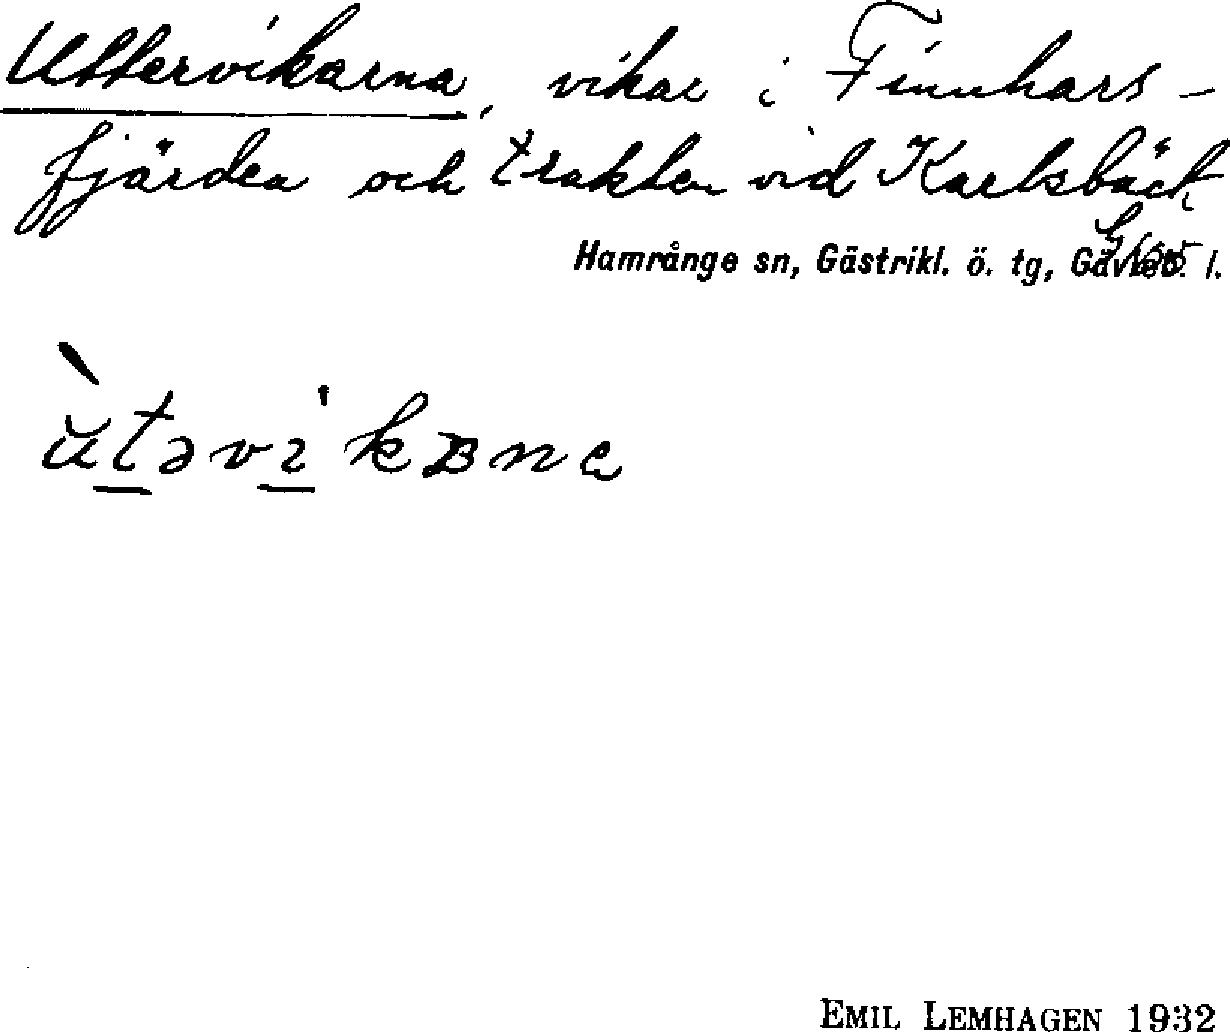 Uttervikarna, vikar i Finnhars-
fjärden och trakten vid Karlsbäck
Hamrånge sn, Gästrikl. ö. tg, Gävleb. l.
ùtəvi'kɐna
EMIL LEMHAGEN 1932